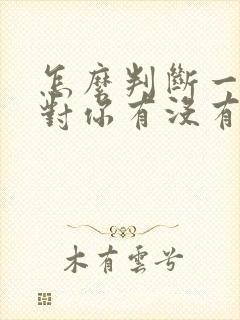 怎麼判斷一
對你有沒有
木有雲兮